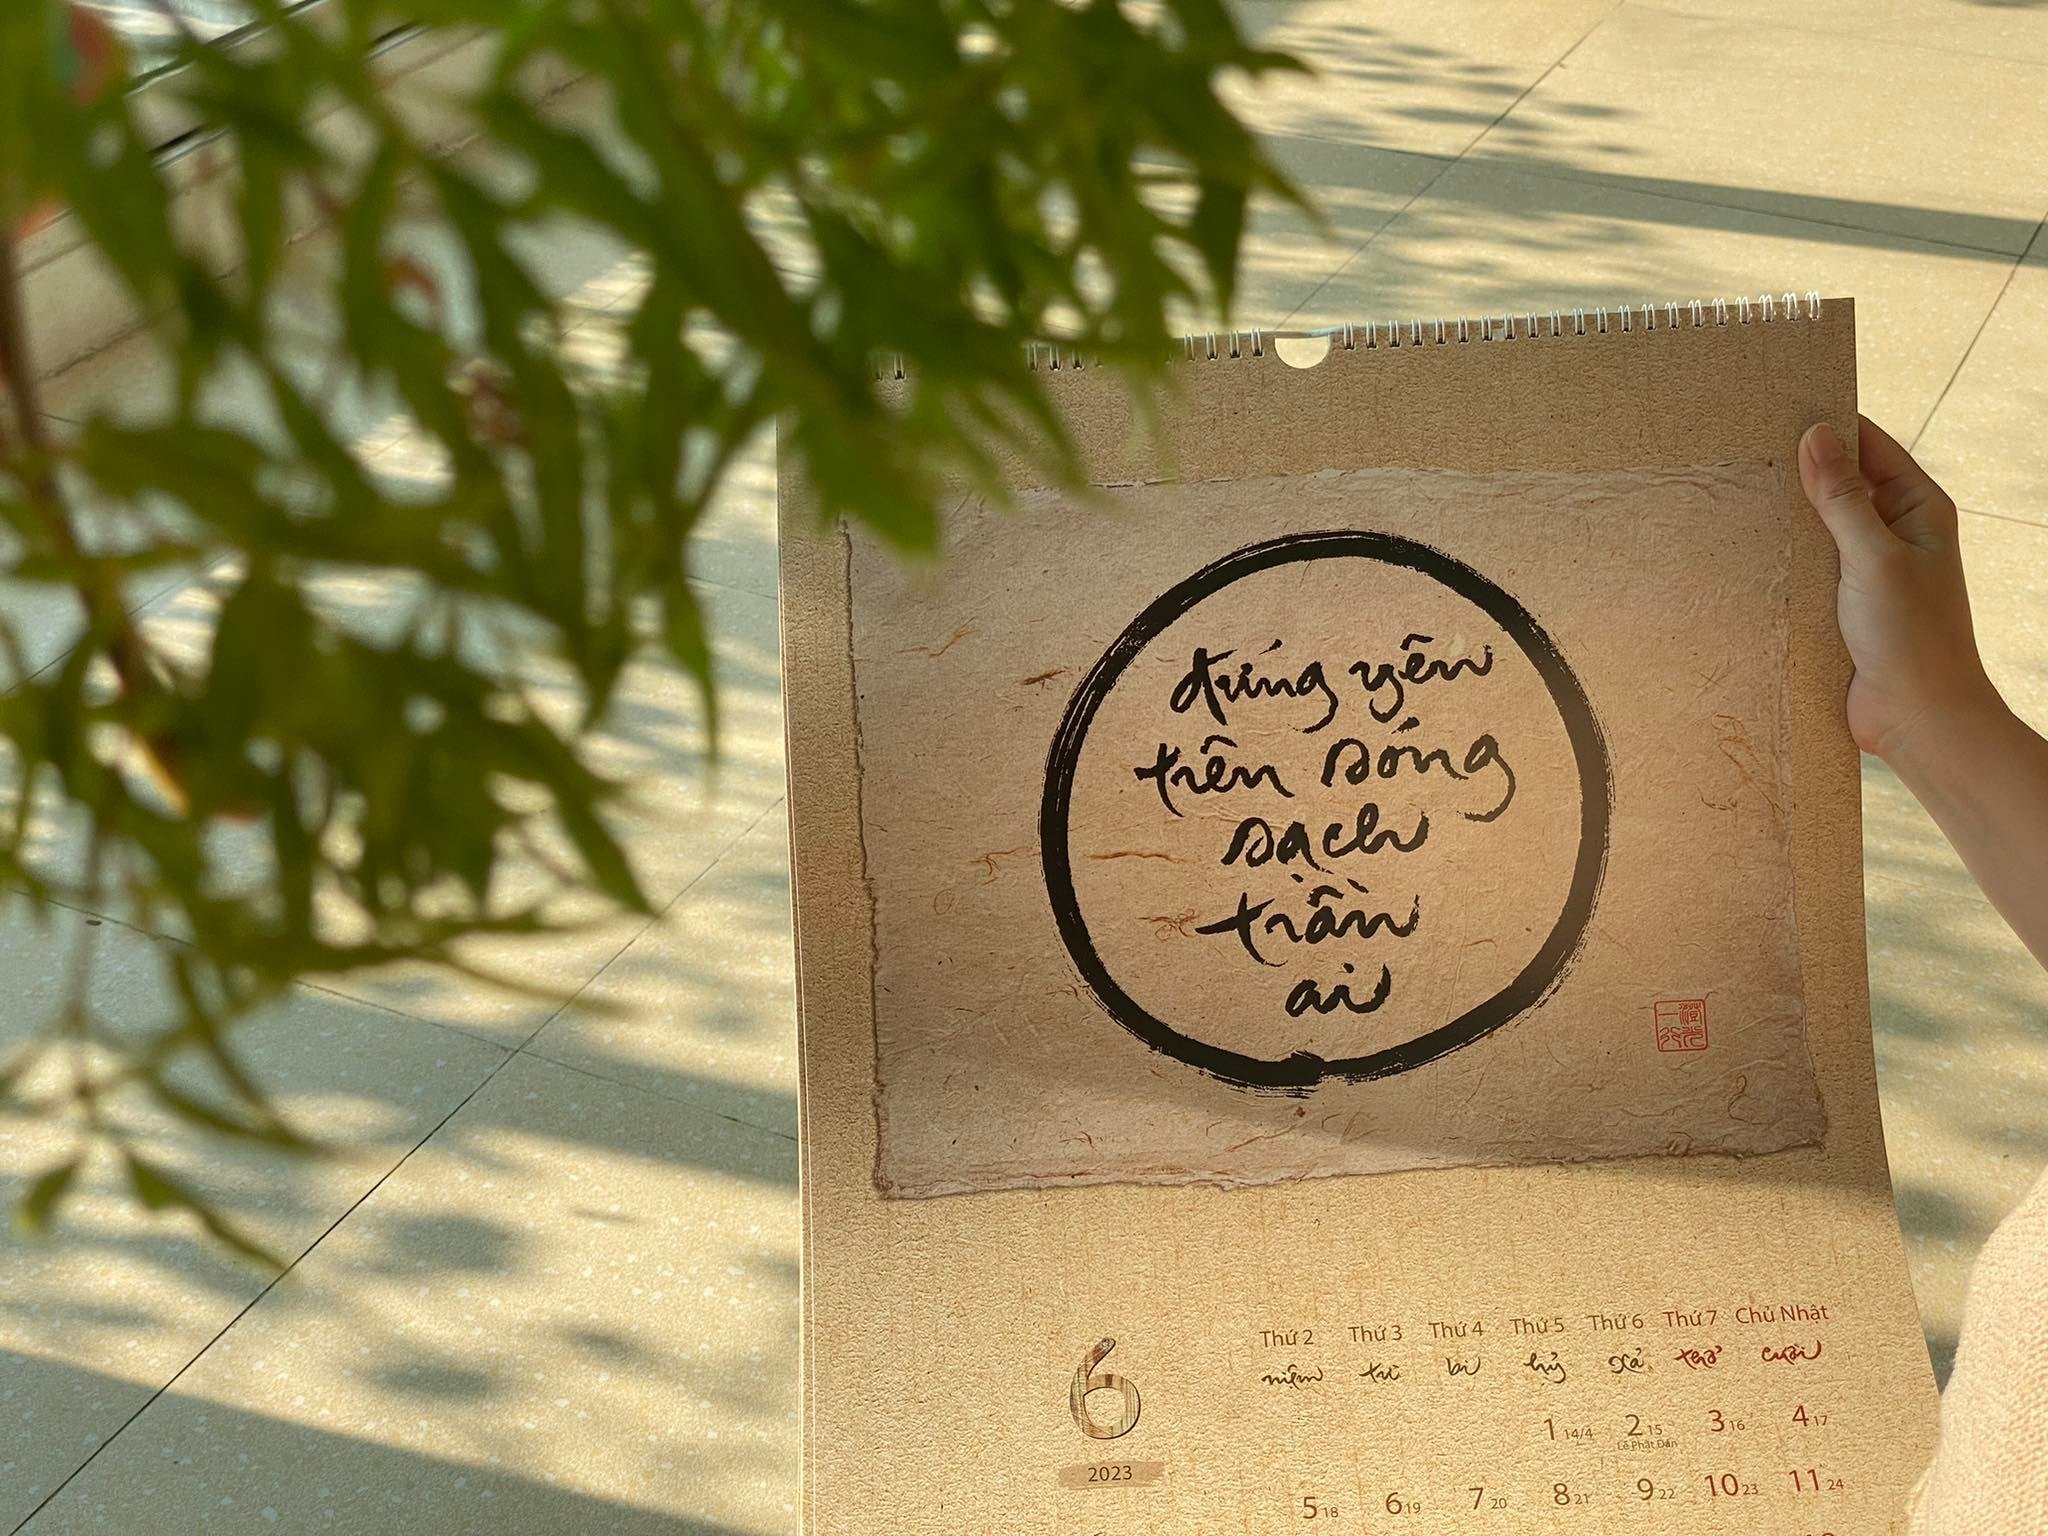 đứng yên
trên sóng
sạch
trần
ai
6
2023
Thứ 2 Thứ 3 Thứ 4 Thứ 5 Thứ 6 Thứ 7 Chủ Nhật
niệm từ bi hỷ xả thở cười
1 14/4 2 15 3 16 4 17
Lễ Phật Đản
5 18 6 19 7 20 8 21 9 22 10 23 11 24